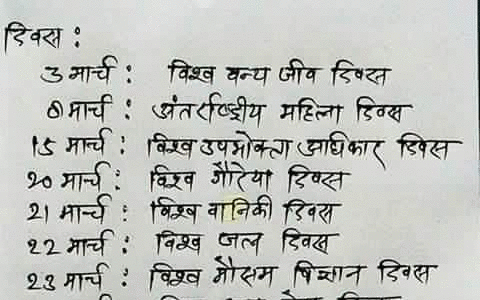 दिवस :
3 मार्च : विश्व वन्य जीव दिवस
8 मार्च : अंतर्राष्ट्रीय महिला दिवस
15 मार्च : विश्व उपभोक्ता अधिकार दिवस
20 मार्च : विश्व गौरेया दिवस
21 मार्च : विश्व वानिकी दिवस
22 मार्च : विश्व जल दिवस
23 मार्च : विश्व मौसम विज्ञान दिवस